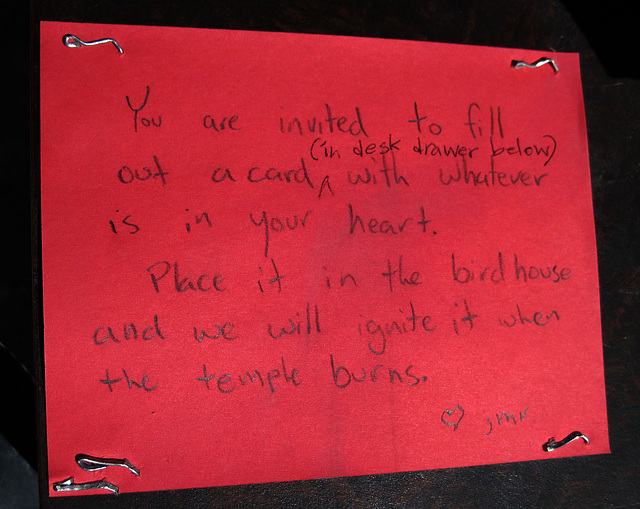 You are invited to fill
(in desk drawer below)
out a card ^ with whatever
is in your heart.
Place it in the birdhouse
and we will ignite it when
the temple burns.
♡